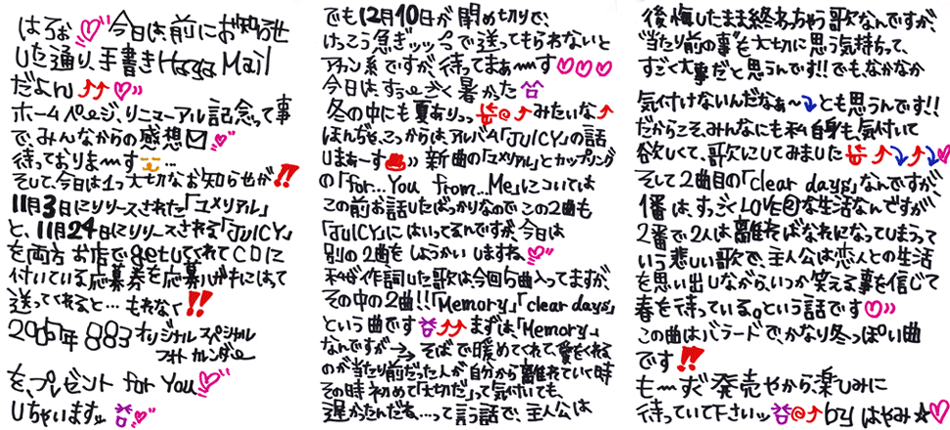 はろぉ♡今日は、前にお知らせ
した通り、手書きHaya Mail
だよん⤴⤴♡
ホームページ、リニューアル記念って事
で、みんなからの感想✉♡
待っておりま〜す…
そして、今日は1つ大切なお知らせが!!
11月3日にリリースされた「ユメリアル」
と、11月24日にリリースされる「JUICY」
を両方お店でgetしてくれてCDに
付いている応募券を応募ハガキにはって
送ってくれると…もれなく!!
2005年883オリジナルスペシャル
フォトカレンダー
を、プレゼント for You♡
しちゃいますッ♡
でも12月10日が〆め切りで、
けっこう急ぎッッで送ってもらわないと
アカン系ですが、待ってまぁ〜す♡♡♡
今日はすぅ〜ごく暑かた
冬の中にも夏ありっっ@⤴みたいな⤴
ほんぢゃ、こっからは、アルバム「JUICY」の話
しまぁーす 新曲の「ユメリアル」とカップリング
の「for…You from…Me」については
この前お話したばっかりなので この2曲も
「JUICY」にはいってるんですが、今日は
別の2曲をしょうかいしますね♡
私が作詞した歌は今回5曲入ってますが、
その中の2曲!!「Memory」「clear days」
という曲です⤴⤴まずは、「Memory」
なんですが→そばで暖めてくれて、愛をくれる
のが当たり前だった人が、自分から離れていく時
その時初めて「大切だ」って気付いても、
遅かったんだね、…って言う話で、主人公は
後悔したまま終わっちゃう歌なんですが、
"当たり前の事"も大切に思う気持ちって、
すごく大事だと思うんです!!でも、なかなか
気付けないんだなぁ〜⤵とも思うんです!!
だからこそ、みんなにも私自身も気付いて
欲しくて、歌にしてみました⤴⤵⤴⤵♡
そして2曲目の「clear days」なんですが、
1番は、すっごくLOVE@な生活なんですが
2番で2人は離ればなれになってしまって
いう悲しい歌で、主人公は恋人との生活
を思い出しながら、いつか笑える事を信じて
春を待っている。という話です♡
この曲はバラードで、かなり冬っぽい曲
です!!
も〜すぐ発売やから楽しみに
待っていて下さいッ@⤴by はやみ☆♡